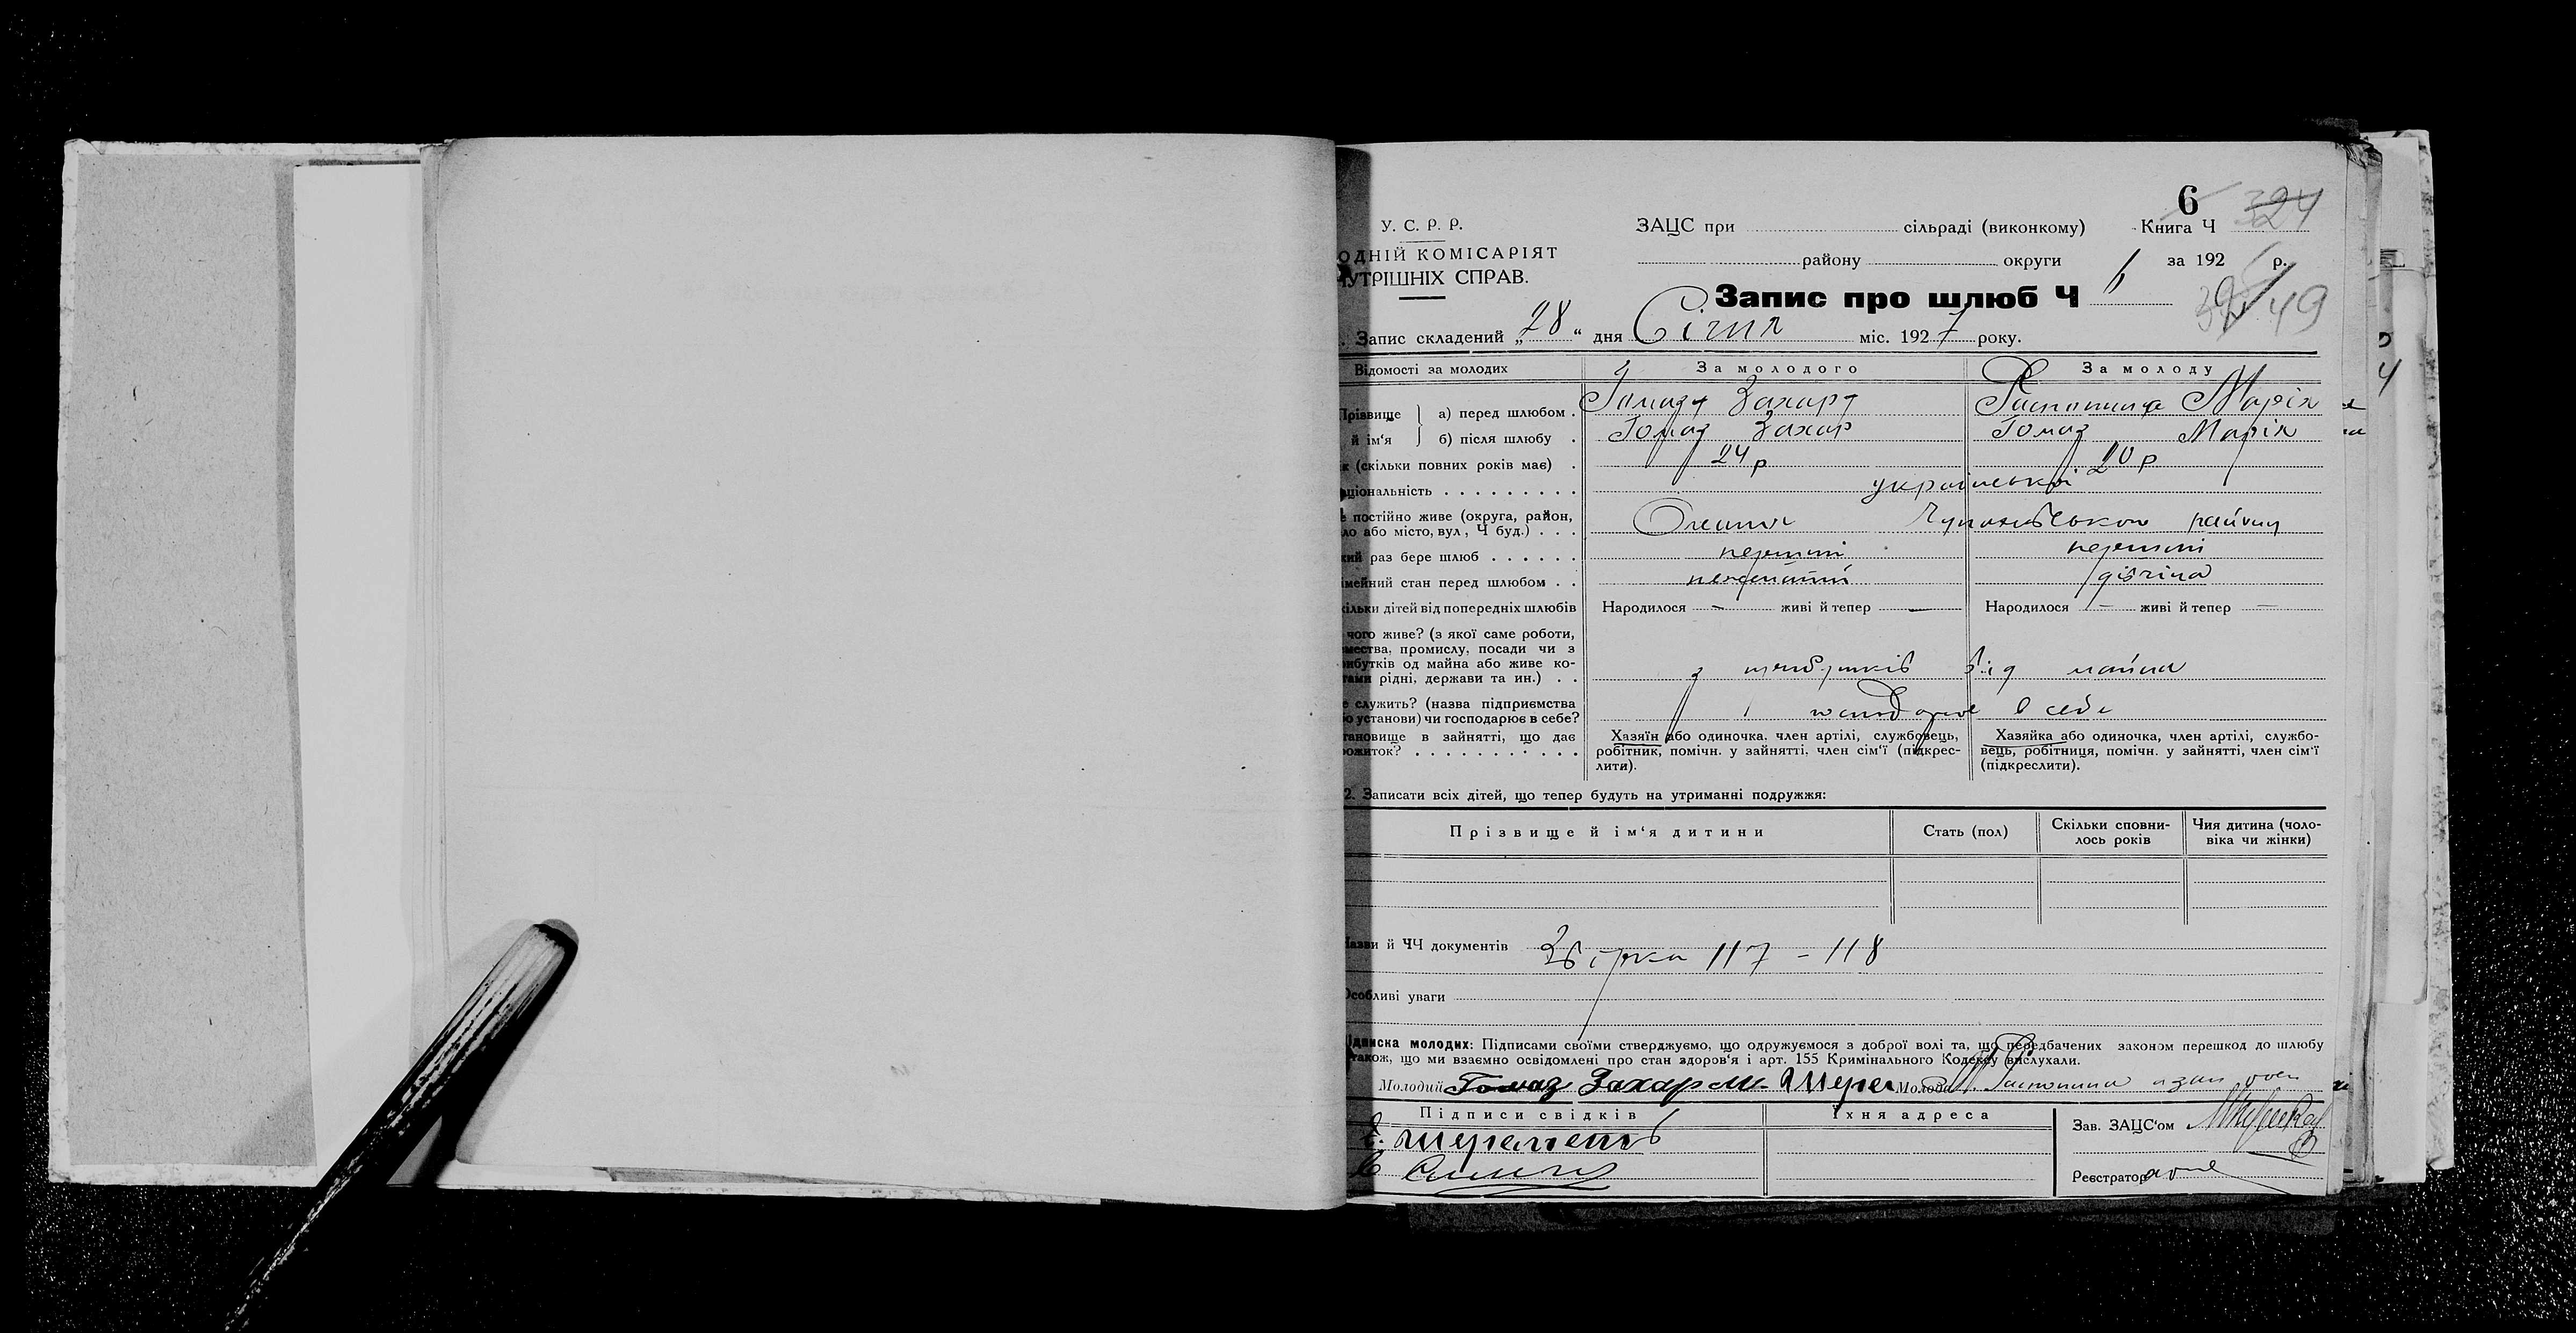 6
324
У. С. Р. Р.
ЗАЦС при сільраді (виконкому) Книга Ч
ОДНІЙ КОМІСАРІЯТ
району округи за 192 р.
УТРІШНІХ СПРАВ.
Запис про шлюб Ч 6
49
Запис складений „28“ дня Січня міс. 1927 року.
Відомості за молодих За молодого За молоду
Прізвище а) перед шлюбом . Гомозу Захару Марія
й ім‘я б) після шлюбу . Гомоз Захар Гомоз Марія
к (скільки повних років має) . 24 р 20 р
аціональність . . . . . . . . . українські
е постійно живе (округа, район,
ло або місто, вул, Ч буд.) . . . району
кий раз бере шлюб . . . . . . перший перший
імейний стан перед шлюбом . . нежонатий дівчина
кільки дітей від попередніх шлюбів Народилося — живі й тепер — Народилося — живі й тепер —
чого живе? (з якої саме роботи,
мества, промислу, посади чи з
ибутків од майна або живе ко-
тами рідні, держави та ин.) . . з прибутків від майна
е служить? (назва підприємства
о установи) чи господарює в себе? господарює в себе
тановище в зайнятті, що дає Хазяїн або одиночка. член артілі, службовець, Хазяйка або одиночка, член артілі, службо-
рожиток? . . . . . . . . . . . робітник, помічн. у зайнятті, член сім‘ї (підкрес- вець, робітниця, помічн. у зайнятті, член сім‘ї
лити). (підкреслити).
2. Записати всіх дітей, що тепер будуть на утриманні подружжя:
Прізвище й ім‘я дитини Стать (пол) Скільки сповни- Чия дитина (чоло-
лось років віка чи жінки)
Назви й ЧЧ документів Збірка 117 – 118
Особливі уваги
Підписка молодих: Підписами своїми стверджуємо, що одружуємося з доброї волі та, що передбачених законом перешкод до шлюбу
також, що ми взаємно освідомлені про стан здоров‘я і арт. 155 Кримінального Кодексу вислухали.
Молодий Гомоз Захар Молода
Підписи свідків Їхня адреса
Зав. ЗАЦС‘ом
Реєстратор